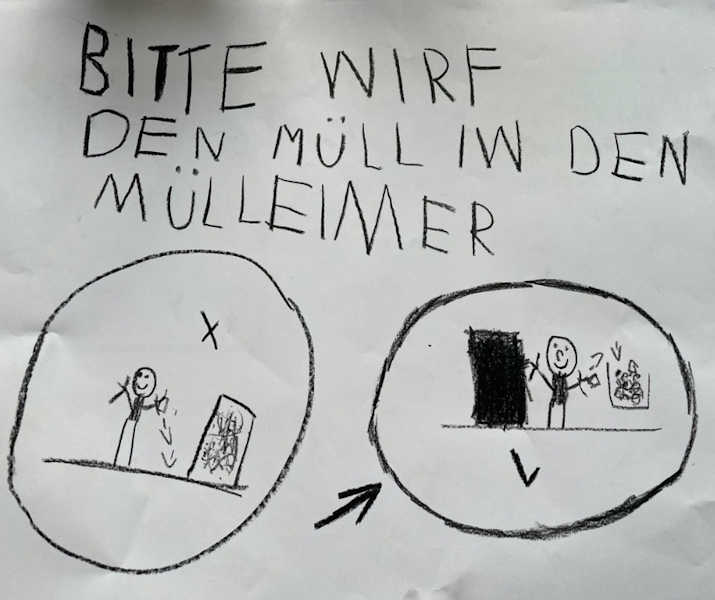 BITTE WIRF
DEN MÜLL IN DEN
MÜLLEIMER